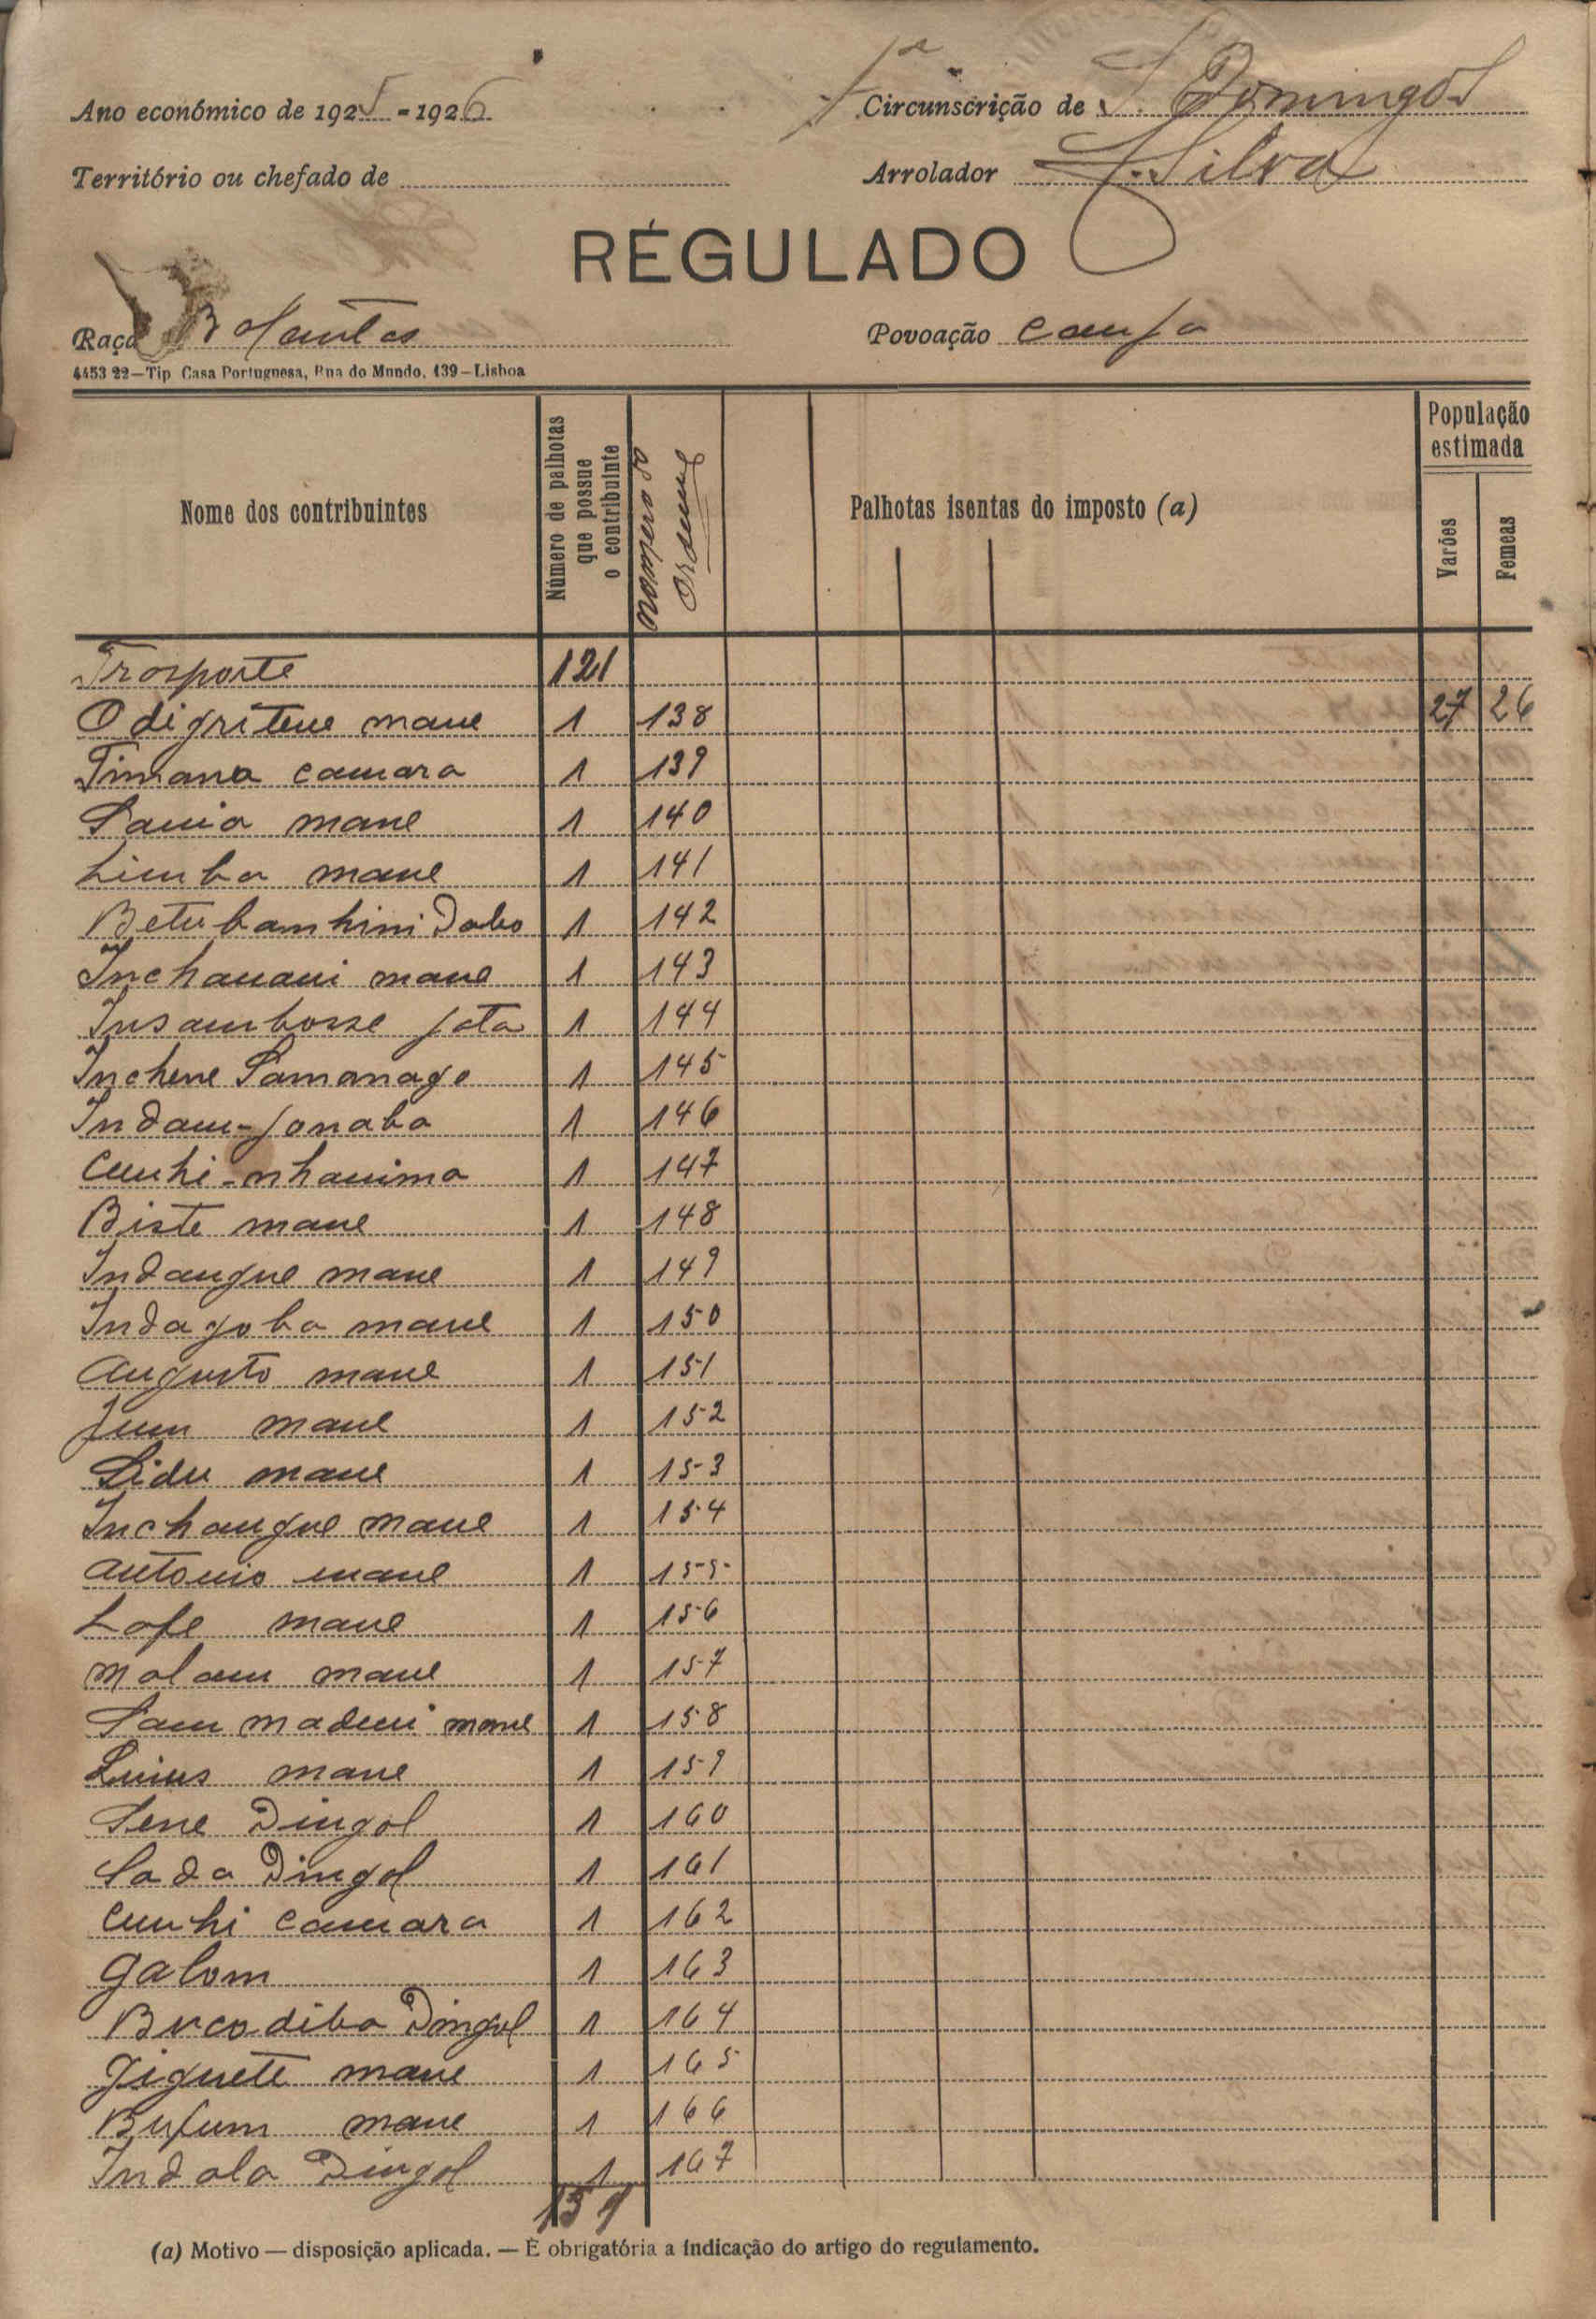 Ano económico de 1925-1926
Circunscrição de S. Domingos
Território ou chefado de
Arrolador J. Silva
RÉGULADO
Raça Balantas
Povoação
4453 22—Tip Casa Portuguesa, Rua do Mundo, 139—Lisboa
Nome dos contribuintes
Número de palhotas que possue o contribuinte
numero d'ordem
Palhotas isentas do imposto (a)
População estimada
Varões
Femeas
Trasporte 121
Odigritene mane 1 138 27 26
Timana camara 1 139
Sania mane 1 140
Limba mane 1 141
Betubamhini Dabo 1 142
Inchanani mane 1 143
Insambosse fata 1 144
Inchene Samanago 1 145
Indam-Jonaba 1 146
Cunhi-nhanima 1 147
Biste mane 1 148
Indangne mane 1 149
Indagoba mane 1 150
Augusto mane 1 151
Jum mane 1 152
Sidu mane 1 153
Inchangne mane 1 154
Antonio mane 1 155
Lofe mane 1 156
Malam mane 1 157
Sam maduni mane 1 158
Luius mane 1 159
Sene Dingol 1 160
Sada Dingol 1 161
Cunhi camara 1 162
Galom 1 163
Bucodiba Dingol 1 164
Jignete mane 1 165
Bufum mane 1 166
Indola Dingol 1 167
151
(a) Motivo — disposição aplicada. — É obrigatória a indicação do artigo do regulamento.